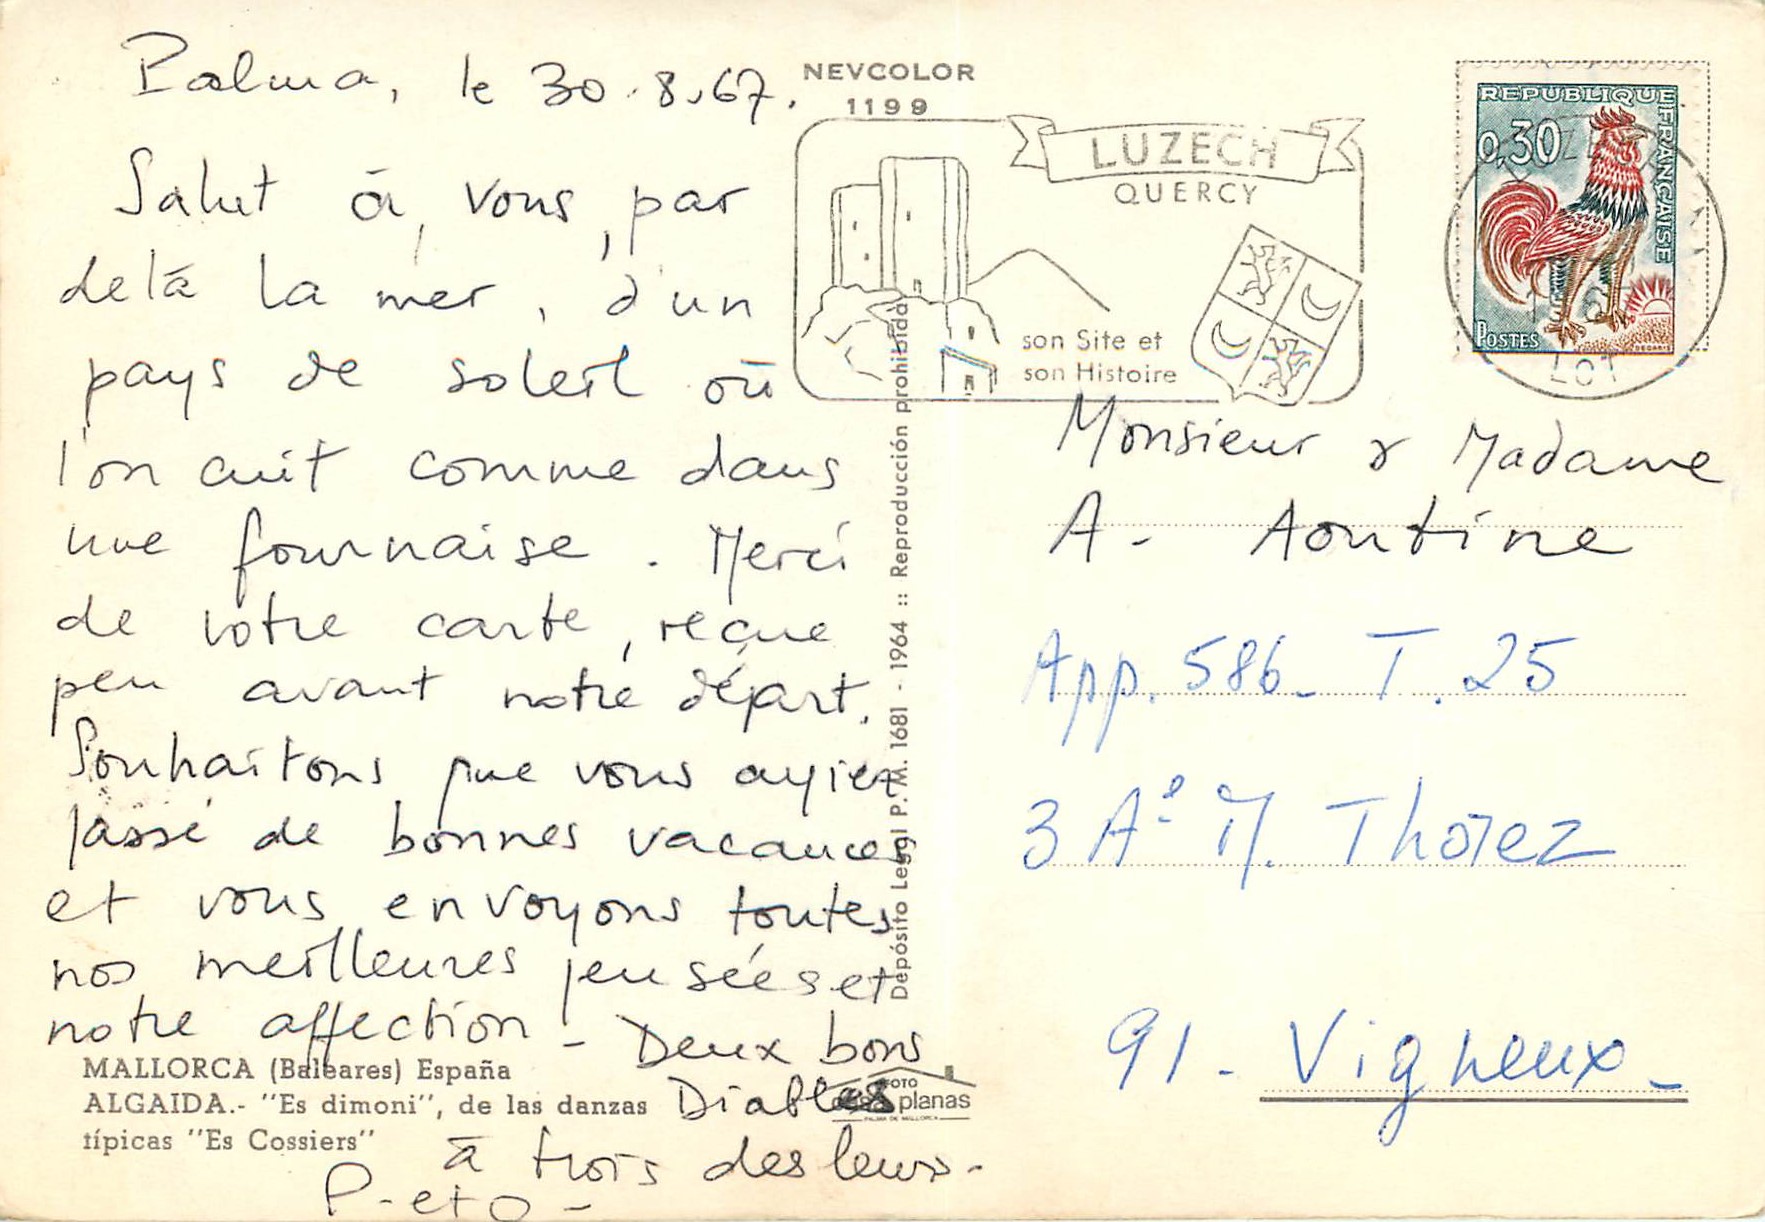 Palma, le 30.8.67.
Salut à vous, par
delà la mer, d'un
pays de soleil où
l'on cuit comme dans
une fournaise. Merci
de votre carte, reçue
peu avant notre départ.
Souhaitons que vous ayiez
passé de bonnes vacances
et vous envoyons toutes
nos meilleures pensées et
notre affection - Deux bons
Diables
à trois des leurs.
P. et O -
MALLORCA (Baleares) España
ALGAIDA.- "Es dimoni", de las danzas
típicas "Es Cossiers"
NEVCOLOR
1199
LUZECH
QUERCY
son Site et
son Histoire
Depósito Legal P. M. 1681 - 1964 :: Reproducción prohibida
FOTO
casa planas
PALMA DE MALLORCA
REPUBLIQUE FRANÇAISE
0,30
POSTES
DECARIS
LOT
Monsieur & Madame
A. Aoutine
App. 586 - T. 25
3 Ae M. Thorez
91 - Vigneux -